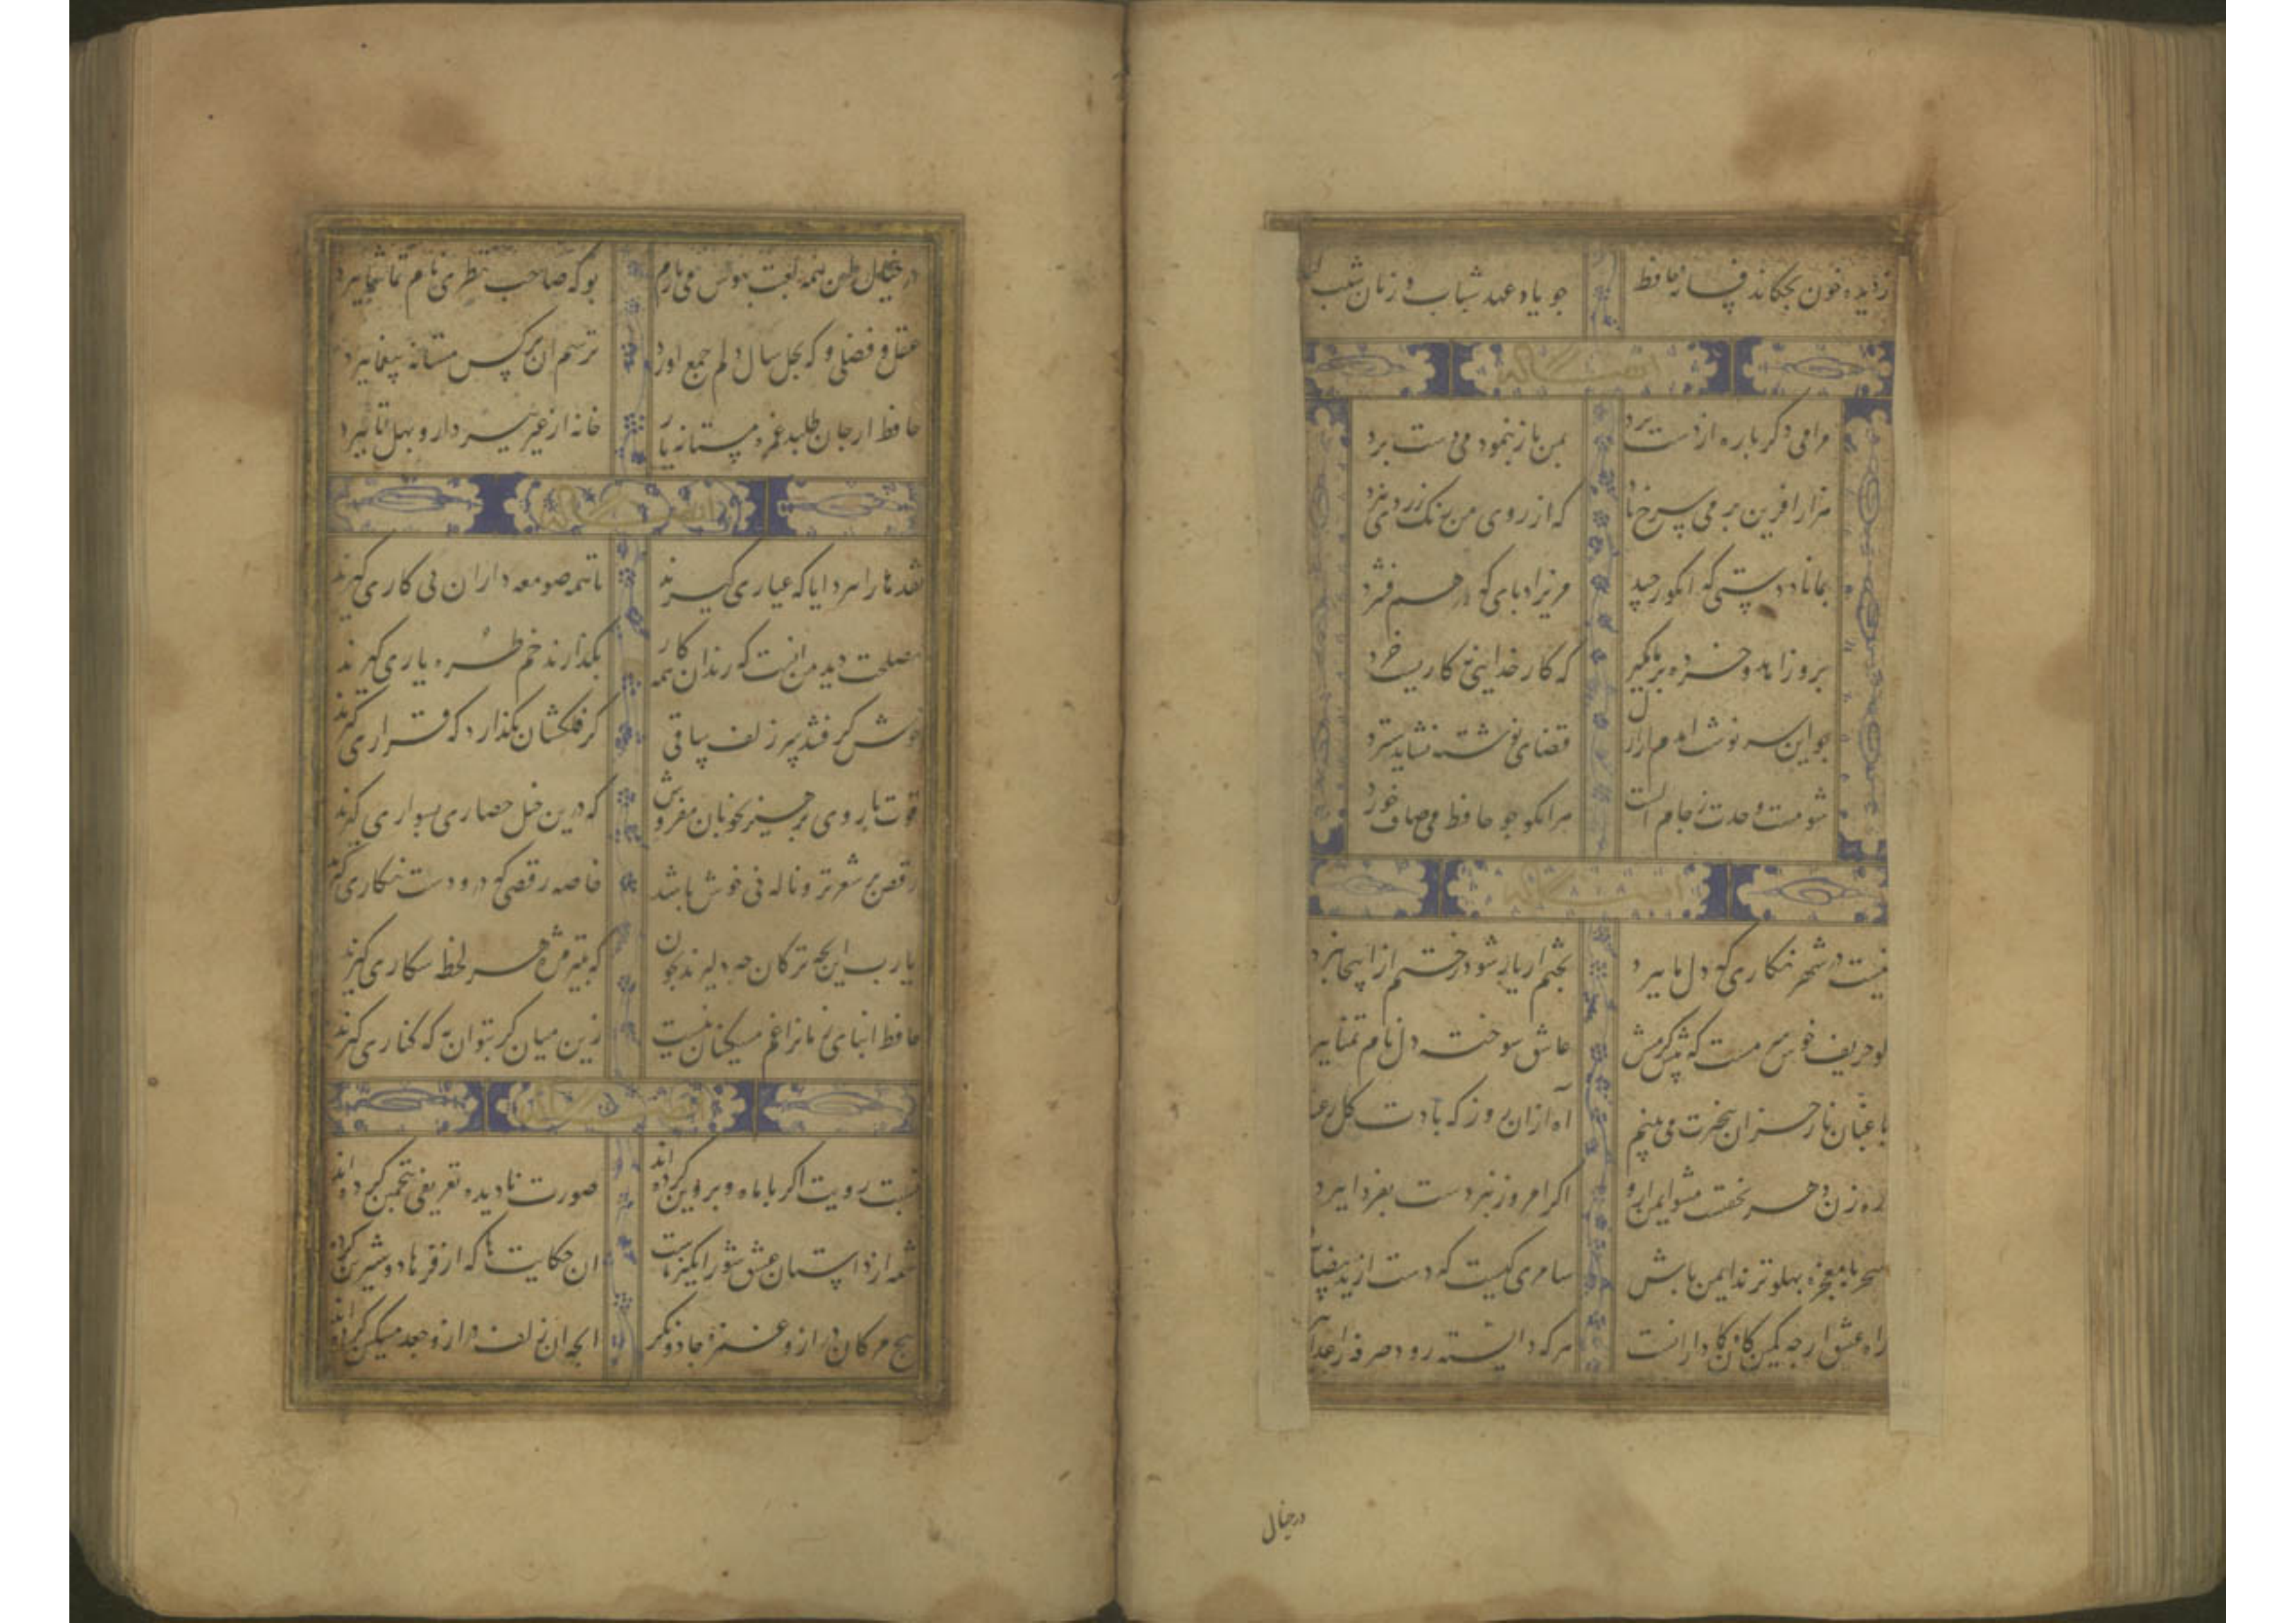 ز دیده خون بچکاند فسانه حافظ
جو یاد عهد شباب و زمان شیب
مرا می دکر باره از دست برد
بمن باز بنمود می دست برد
هزار افرین بر می سرخ باد
که از روی من رنک زردی ببرد
بنازم دستی که انکور چید
مریزاد پای که در هم فشرد
برو زاهدا خرده بر ما مکیر
که کار خدایی نه کاریست خرد
جو این سرنوشت امدم از ازل
قضای نوشته نشاید سترد
شو مست وحدت ز جام الست
هر انکو جو حافظ می صاف خورد
نیست در شهر نکاری که دل ما ببرد
بختم ار یار شود رختم از اینجا ببرد
کو حریف خوش سرمست که پیش کرمش
عاشق سوخته دل نام تمنا ببرد
باغبانا ز خزان بیخبرت می بینم
اه از ان روز که بادت کل رعنا
ره زن دهر نخفتست مشو ایمن ازو
اکر امروز نبردست بفردا ببرد
سحر با معجزه پهلو نزند ایمن باش
سامری کیست که دست از ید بیضا
راه عشق ارجه کمین کاه کمان دارانست
هرکه دانسته رود صرفه ز اعدا
در خیال
در خیال این همه لعبت بهوس می بازم
بو که صاحب نظری نام تماشا ببرد
عقل و فضلی که بچل سال دلم جمع اورد
ترسم ان نرکس مستانه بیغما ببرد
حافظ ار جان طلبد غمزه مستانه یار
خانه از غیر بپرداز و بهل تا ببرد
نقدها را بود ایا که عیاری کیرند
تا همه صومعه داران پی کاری کیرند
مصلحت دید من انست که رندان همه کار
بکذارند خم طره یاری کیرند
خوش کرفتند سر زلف ساقی
کر فلکشان بکذارد که قراری کیرند
قوت بازوی پرهیز بخوبان مفروش
که درین خیل حصاری بسواری کیرند
رقص بر شعر تر و ناله نی خوش باشد
خاصه رقصی که درو دست نکاری کیرند
یا رب این بچه ترکان چه دلیرند بخون
که بتیر مژه هر لحظه شکاری کیرند
حافظ ابنای زمانرا غم مسکینان نیست
زین میان کر بتوان به که کناری کیرند
نسبت رویت اکر با ماه و پروین کرده اند
صورت نادیده تعریفی بتخمین کرده اند
شمه از داستان عشق شورانکیز ماست
ان حکایتها که از فرهاد و شیرین کرده اند
هیچ مژکان دراز و غمزه جادو نکرد
انچه ان زلف دراز و جعد مشکین کرده اند